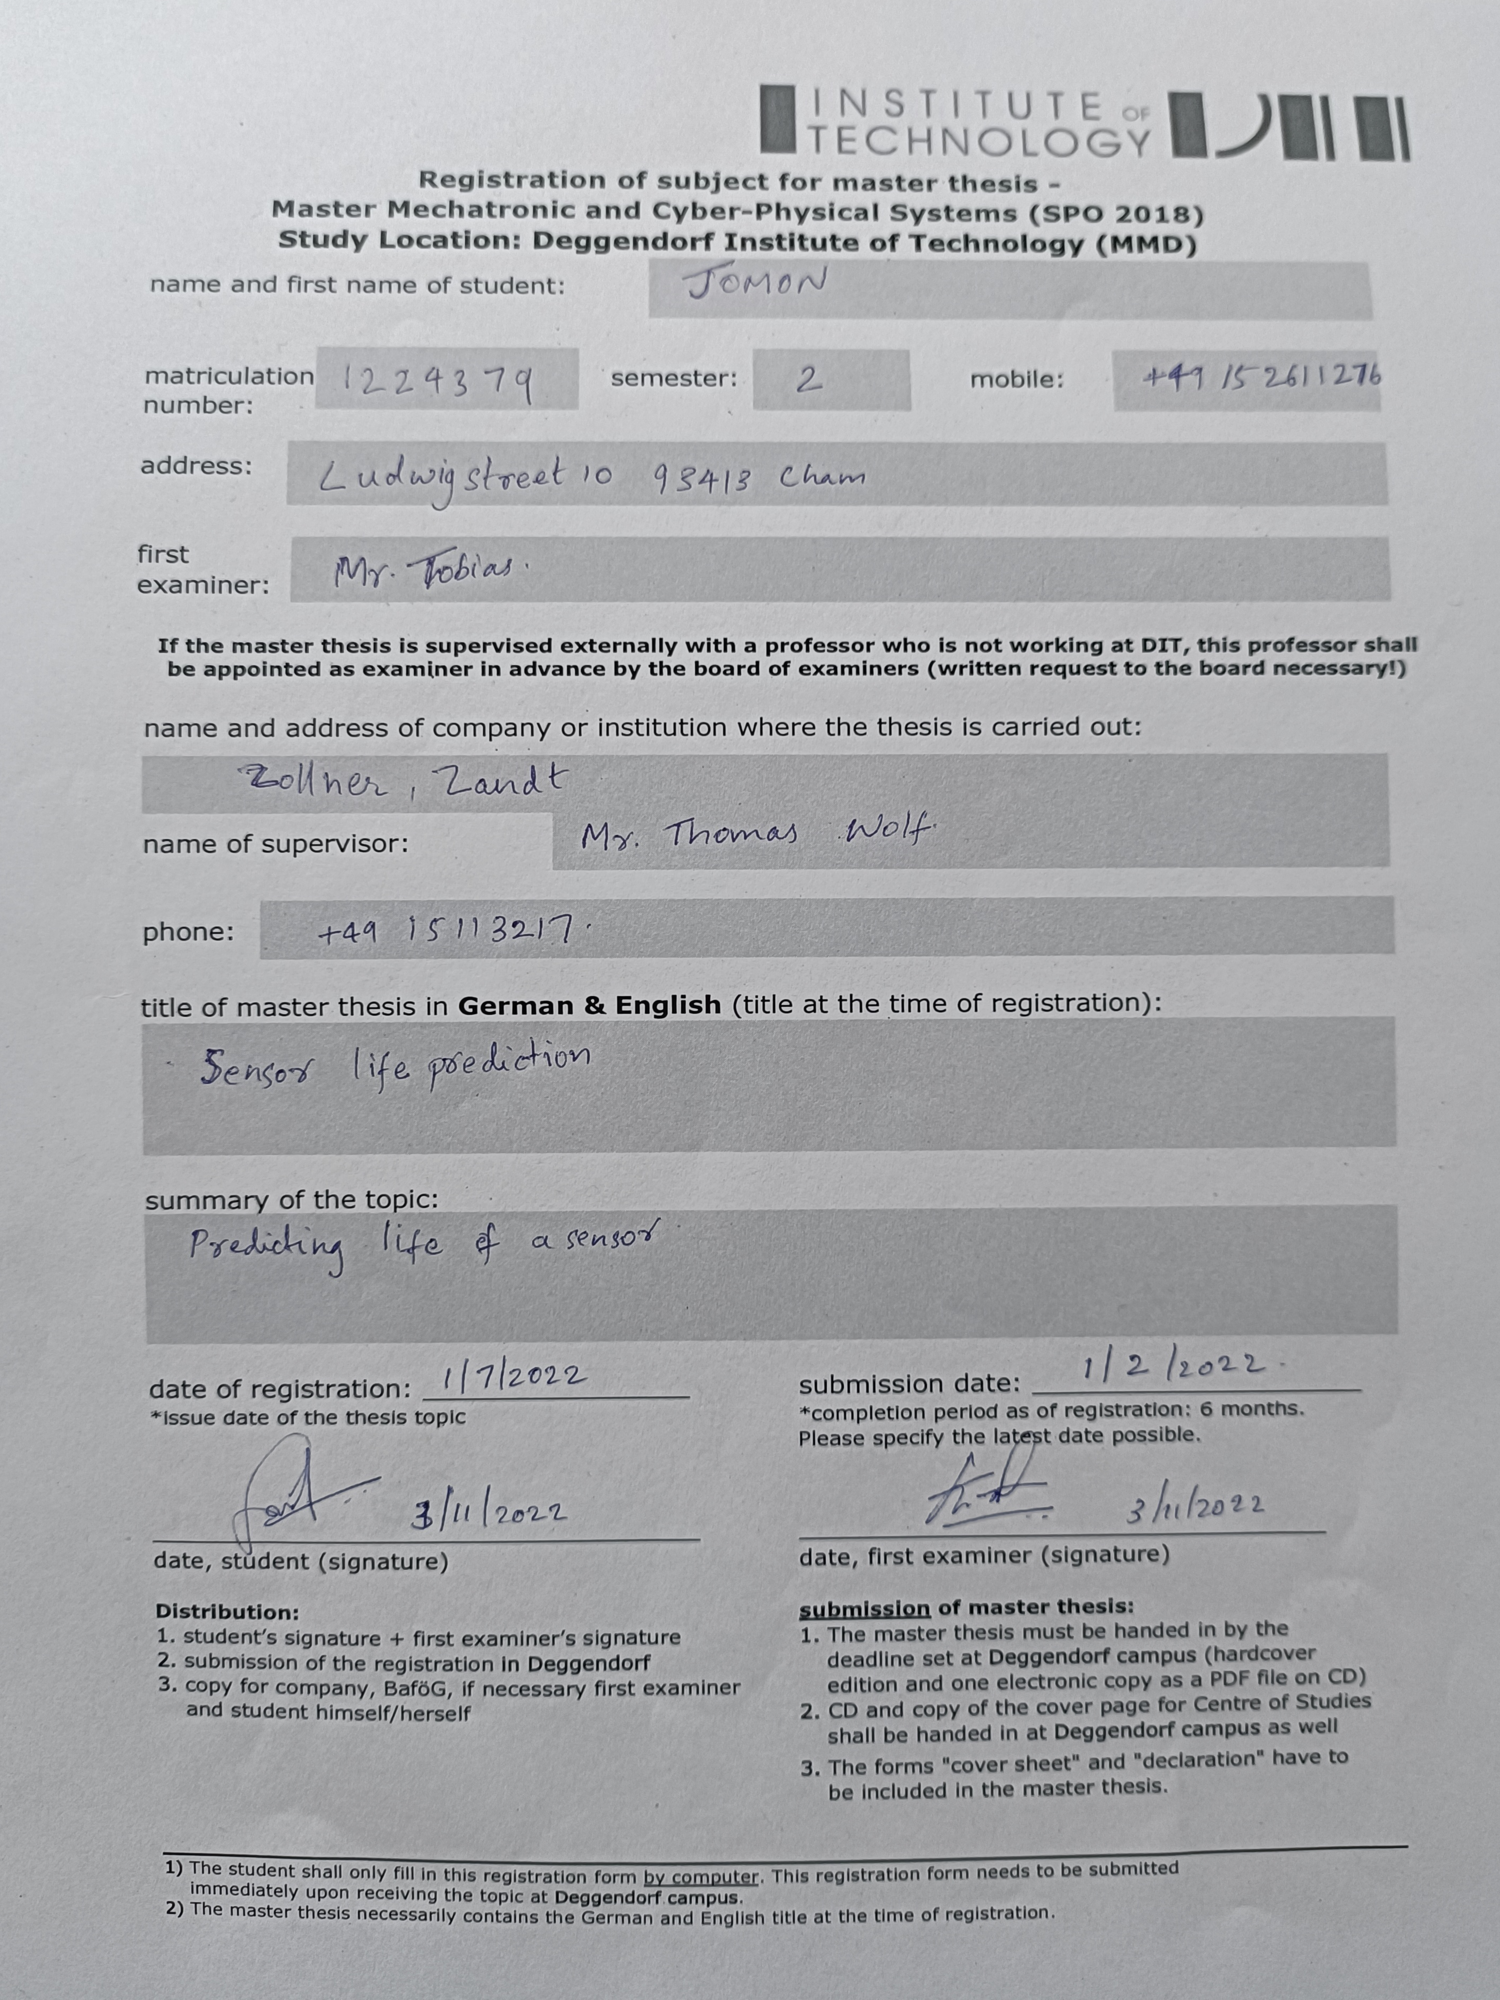 INSTITUTE OF
TECHNOLOGY
Registration of subject for master thesis -
Master Mechatronic and Cyber-Physical Systems (SPO 2018)
Study Location: Deggendorf Institute of Technology (MMD)
name and first name of student: JOMON
matriculation number: 1224379 semester: 2 mobile: +49 15 2611276
address: Ludwigstreet 10 93413 Cham
first examiner: Mr. Tobias.
If the master thesis is supervised externally with a professor who is not working at DIT, this professor shall
be appointed as examiner in advance by the board of examiners (written request to the board necessary!)
name and address of company or institution where the thesis is carried out:
Zollner, Zandt
name of supervisor: Mr. Thomas Wolf.
phone: +49 15113217.
title of master thesis in German & English (title at the time of registration):
Sensor life prediction
summary of the topic:
Predicting life of a sensor
date of registration: 1/7/2022 submission date: 1/2/2022.
*issue date of the thesis topic
*completion period as of registration: 6 months.
Please specify the latest date possible.
3/11/2022 3/11/2022
date, student (signature) date, first examiner (signature)
Distribution:
1. student's signature + first examiner's signature
2. submission of the registration in Deggendorf
3. copy for company, BaföG, if necessary first examiner
and student himself/herself
submission of master thesis:
1. The master thesis must be handed in by the
deadline set at Deggendorf campus (hardcover
edition and one electronic copy as a PDF file on CD)
2. CD and copy of the cover page for Centre of Studies
shall be handed in at Deggendorf campus as well
3. The forms "cover sheet" and "declaration" have to
be included in the master thesis.
1) The student shall only fill in this registration form by computer. This registration form needs to be submitted
immediately upon receiving the topic at Deggendorf campus.
2) The master thesis necessarily contains the German and English title at the time of registration.